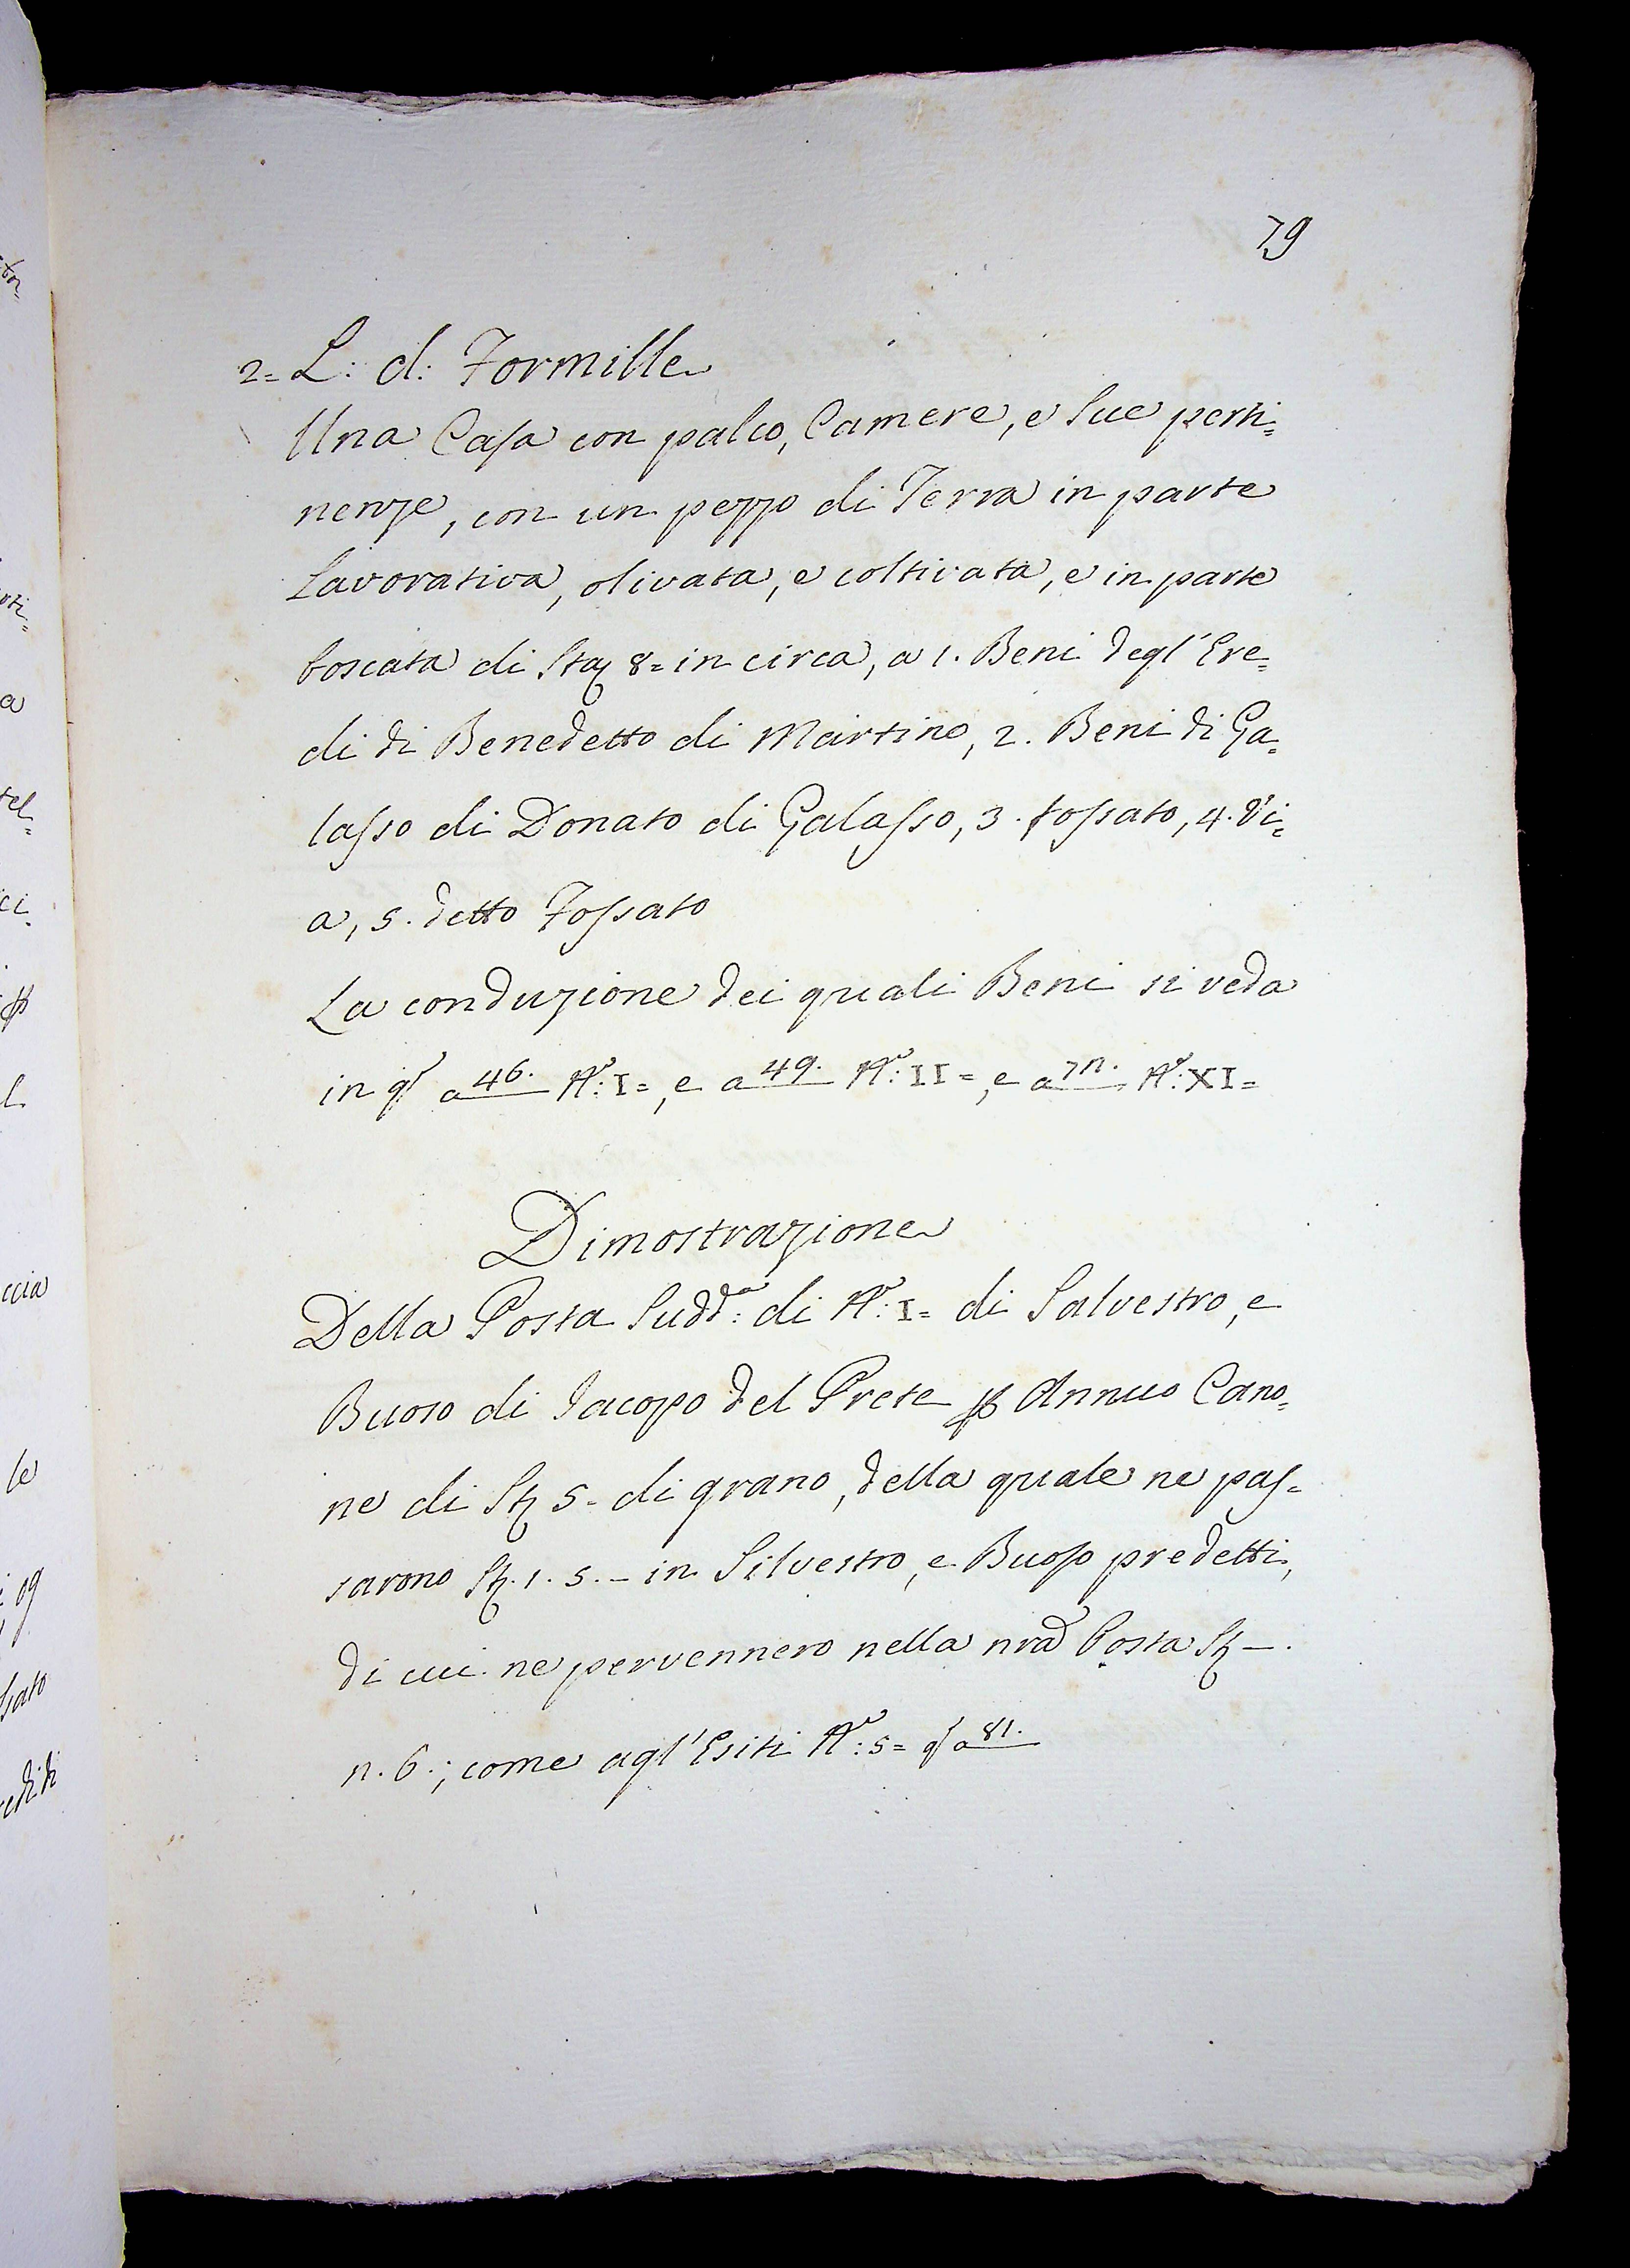 79
2= L: d: Formille
Una Casa con palco, Camere, e sue perti=
nenze, con un pezzo di Terra in parte
Lavorativa, olivata, e coltivata, e in parte
boscata di Sta 8= in circa, a 1. Beni degl' Ere=
di di Benedetto di Martino, 2. Beni di Ga=
lasso di Donato di Galasso, 3. fossato, 4. Vi=
a, 5. detto Fossato
La conduzione dei quali Beni si veda
in q a 46. No: I=, e a 49. No: II=, e a No: XI=
Dimostrazione
Della Posta Sudda: di No: I= di Salvestro, e
Buoso di Jacopo del Prete p Annuo Cano=
ne di St 5= di grano, della quale ne pas=
sarono St. 1. 5. – in Silvestro, e Buoso predetti,
di cui ne pervennero nella nra Posta St –.
n. 6.; come agl' Esiti No: 5= q a 81.